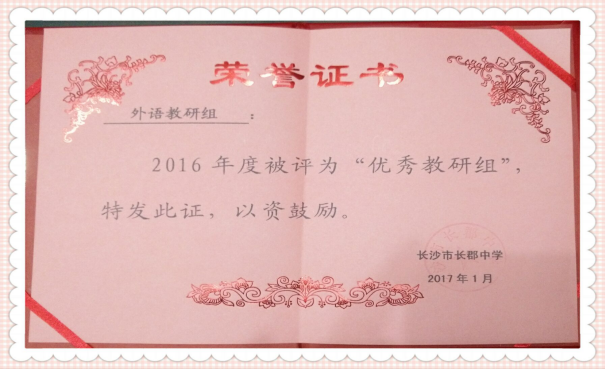 荣誉证书
外语教研组：
2016 年度被评为“优秀教研组”，
特发此证，以资鼓励。
长沙市长郡中学
2017 年 1 月